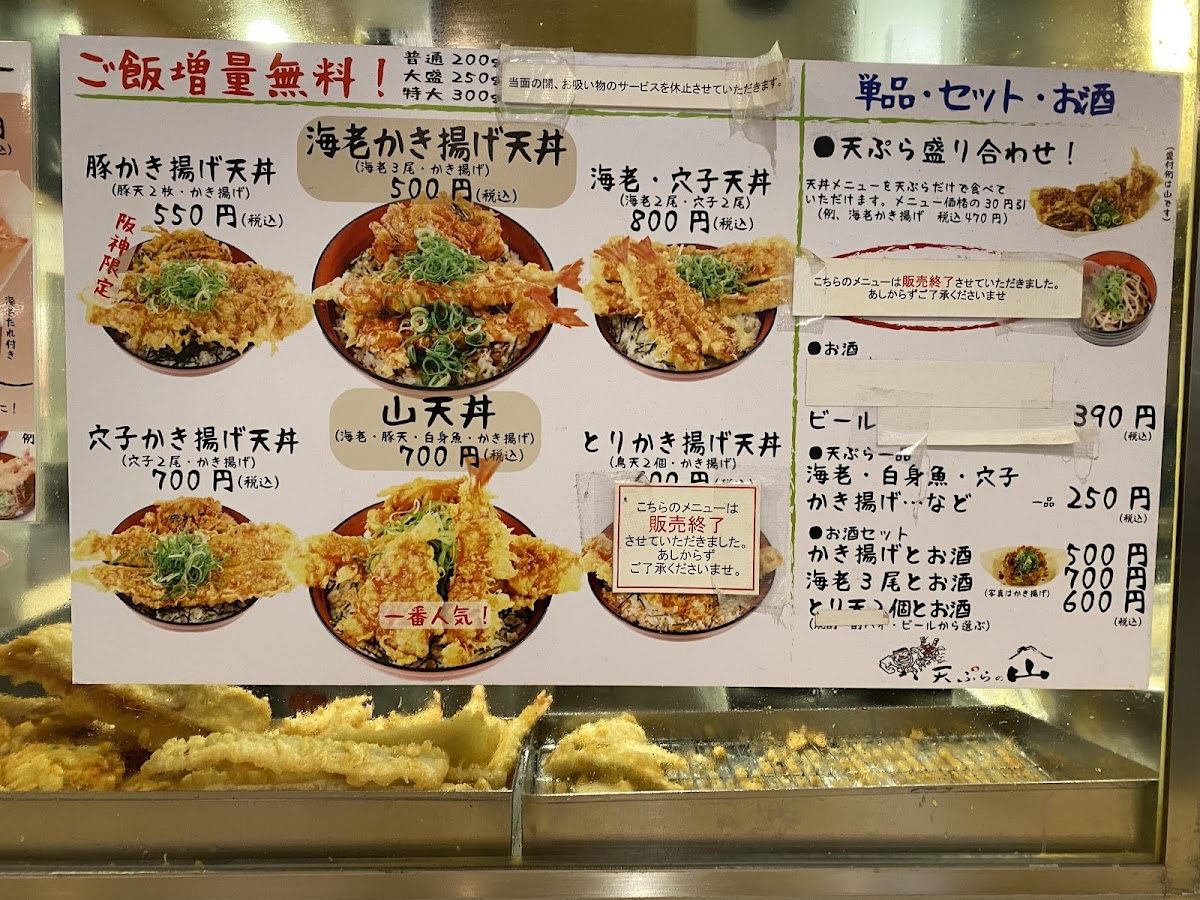 ご飯増量無料！
普通 200g
大盛 250g
特大 300g
当面の間、お吸い物のサービスを休止させていただきます。
豚かき揚げ天丼
(豚天2枚・かき揚げ)
550円(税込)
阪神限定
海老かき揚げ天丼
(海老3尾・かき揚げ)
500円(税込)
海老・穴子天丼
(海老2尾・穴子2尾)
800円(税込)
穴子かき揚げ天丼
(穴子2尾・かき揚げ)
700円(税込)
山天丼
(海老・豚天・白身魚・かき揚げ)
700円(税込)
一番人気！
とりかき揚げ天丼
(鳥天2個・かき揚げ)
00円(税込)
こちらのメニューは
販売終了
させていただきました。
あしからず
ご了承くださいませ。
単品・セット・お酒
●天ぷら盛り合わせ！
天丼メニューを天ぷらだけで食べて
いただけます。メニュー価格の30円引
(例、海老かき揚げ 税込470円)
(盛付例は山です)
こちらのメニューは販売終了させていただきました。
あしからずご了承くださいませ
●お酒
ビール 390円
(税込)
●天ぷら一品
海老・白身魚・穴子
かき揚げ…など 一品 250円
(税込)
●お酒セット
かき揚げとお酒 500円
海老3尾とお酒 700円
とり天2個とお酒 600円
(写真はかき揚げ)
(税込)
・ビールから選ぶ)
天ぷらの山
海老たれ付き
例